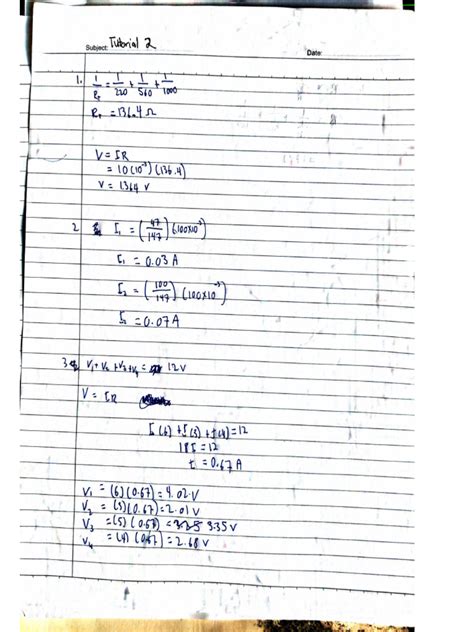 Subject: Tutorial 2
Date:
1. 1/R_T = 1/220 + 1/560 + 1/1000
R_T = 136.4 Ω
V = IR
= 10(10⁻³)(136.4)
V = 1.364 V
2. I₁ = (47/147)(100x10⁻³)
I₁ = 0.03 A
I₂ = (100/147)(100x10⁻³)
I₂ = 0.07 A
3. V₁ + V₂ + V₃ + V₄ = 12V
V = IR
I(6) + I(3) + I(5) + I(4) = 12
18I = 12
I = 0.67 A
V₁ = (6)(0.67) = 4.02 V
V₂ = (3)(0.67) = 2.01 V
V₃ = (5)(0.67) = 3.35 V
V₄ = (4)(0.67) = 2.68 V